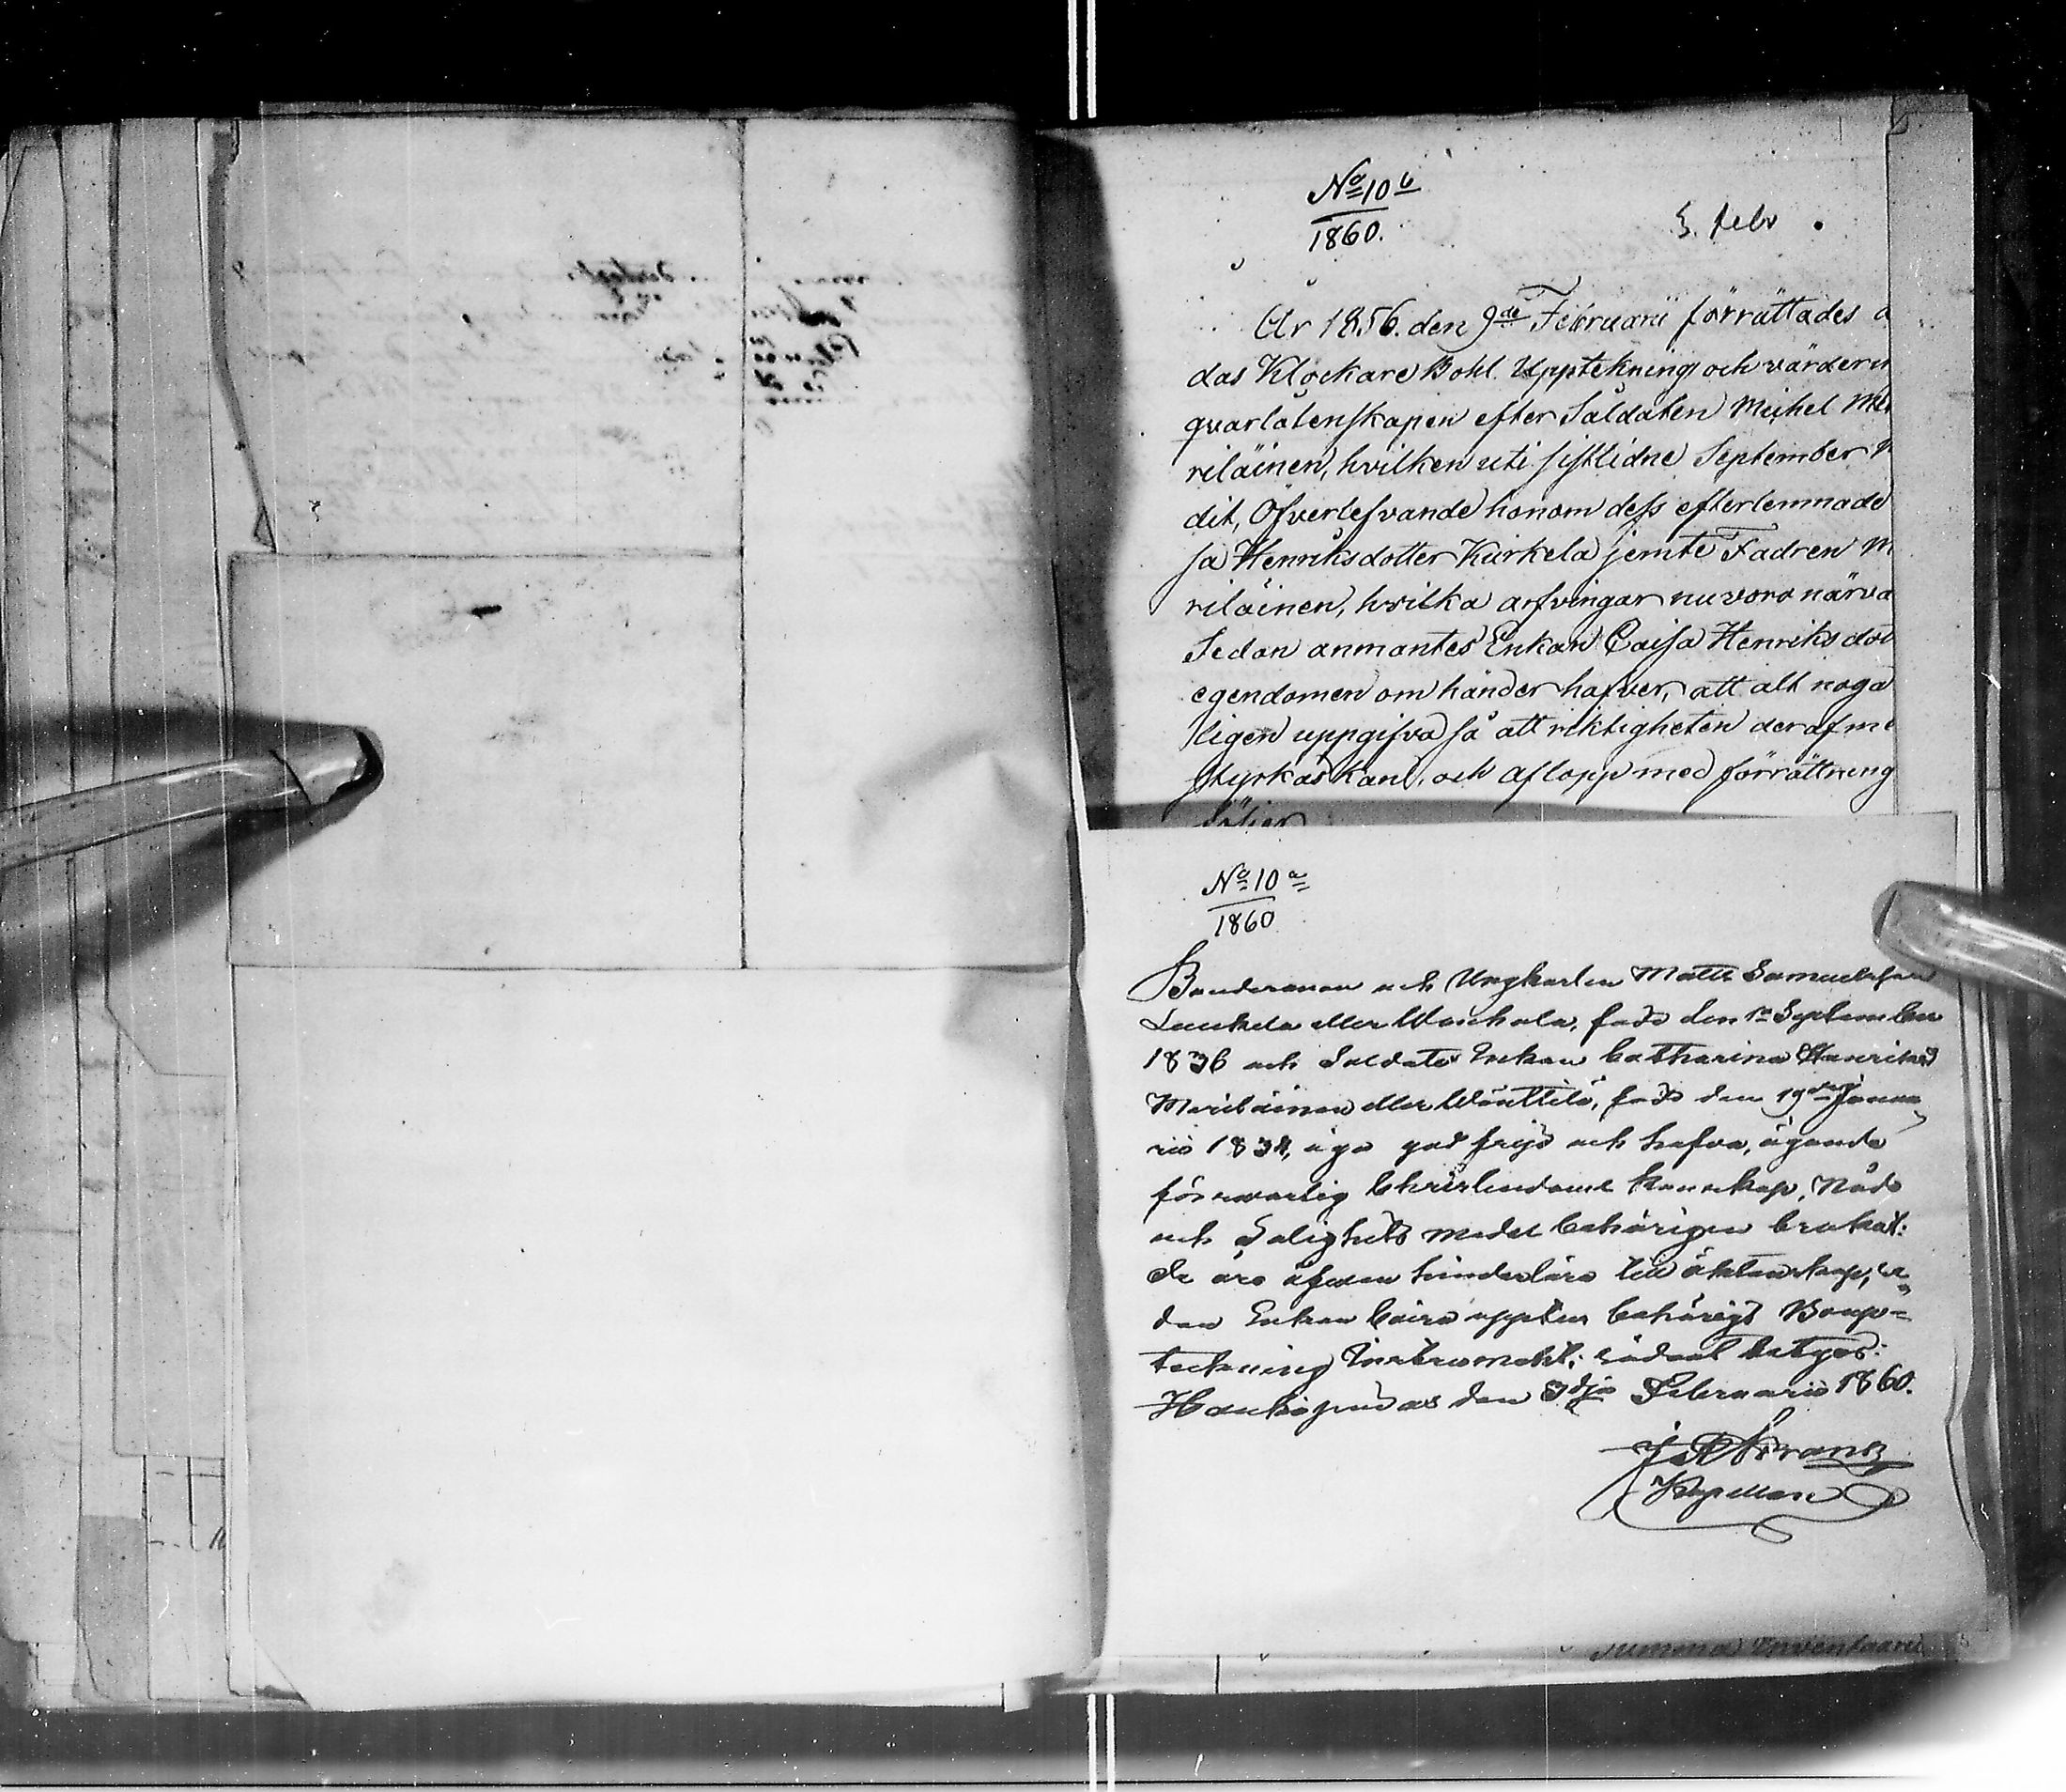 No 10 b
1860.
5. febr
År 1856. den 9de Februarii förrättades å
das Klockare Bohl. Upptekning och värderin
qvarlåtenskapen efter Saldaten Michel Me
riläinen, hvilken uti sistlidne September
dit, Öfverlefvande honom dess efterlemnade
sa Henriksdotter Kurkela jemte Fadren M
riläinen, hvilka arfvingar nu voro närva
Sedan anmantes Enkan Caisa Henriks dot
egendomen om händer hafver, att alt noga
ligen uppgifva så att riktigheten deraf me
styrkas kan, och aflopp med förrättning
följer
No 10 a
1860
Bondesonen och Ungkarlen Matts Samuelsson
eller född den 1a September
1836 och Soldats Enkan Catharina Henriksd
Meriläinen eller Wänttilä, född den 19de Janua
rii 1834, äga god frejd och hafva, ägande
försvarlig Christendoms kunskap, Nåde
och Salighets medel behörigen brukat:
De äro äfven hinderlösa till äktenskap, se
dan Enkan Caisa uppter behörigt Boupp-
teckning Instrument; sådant betygas:
Haukipudas den 3dje Februarii 1860.
Kapellan
Summa Inventarii